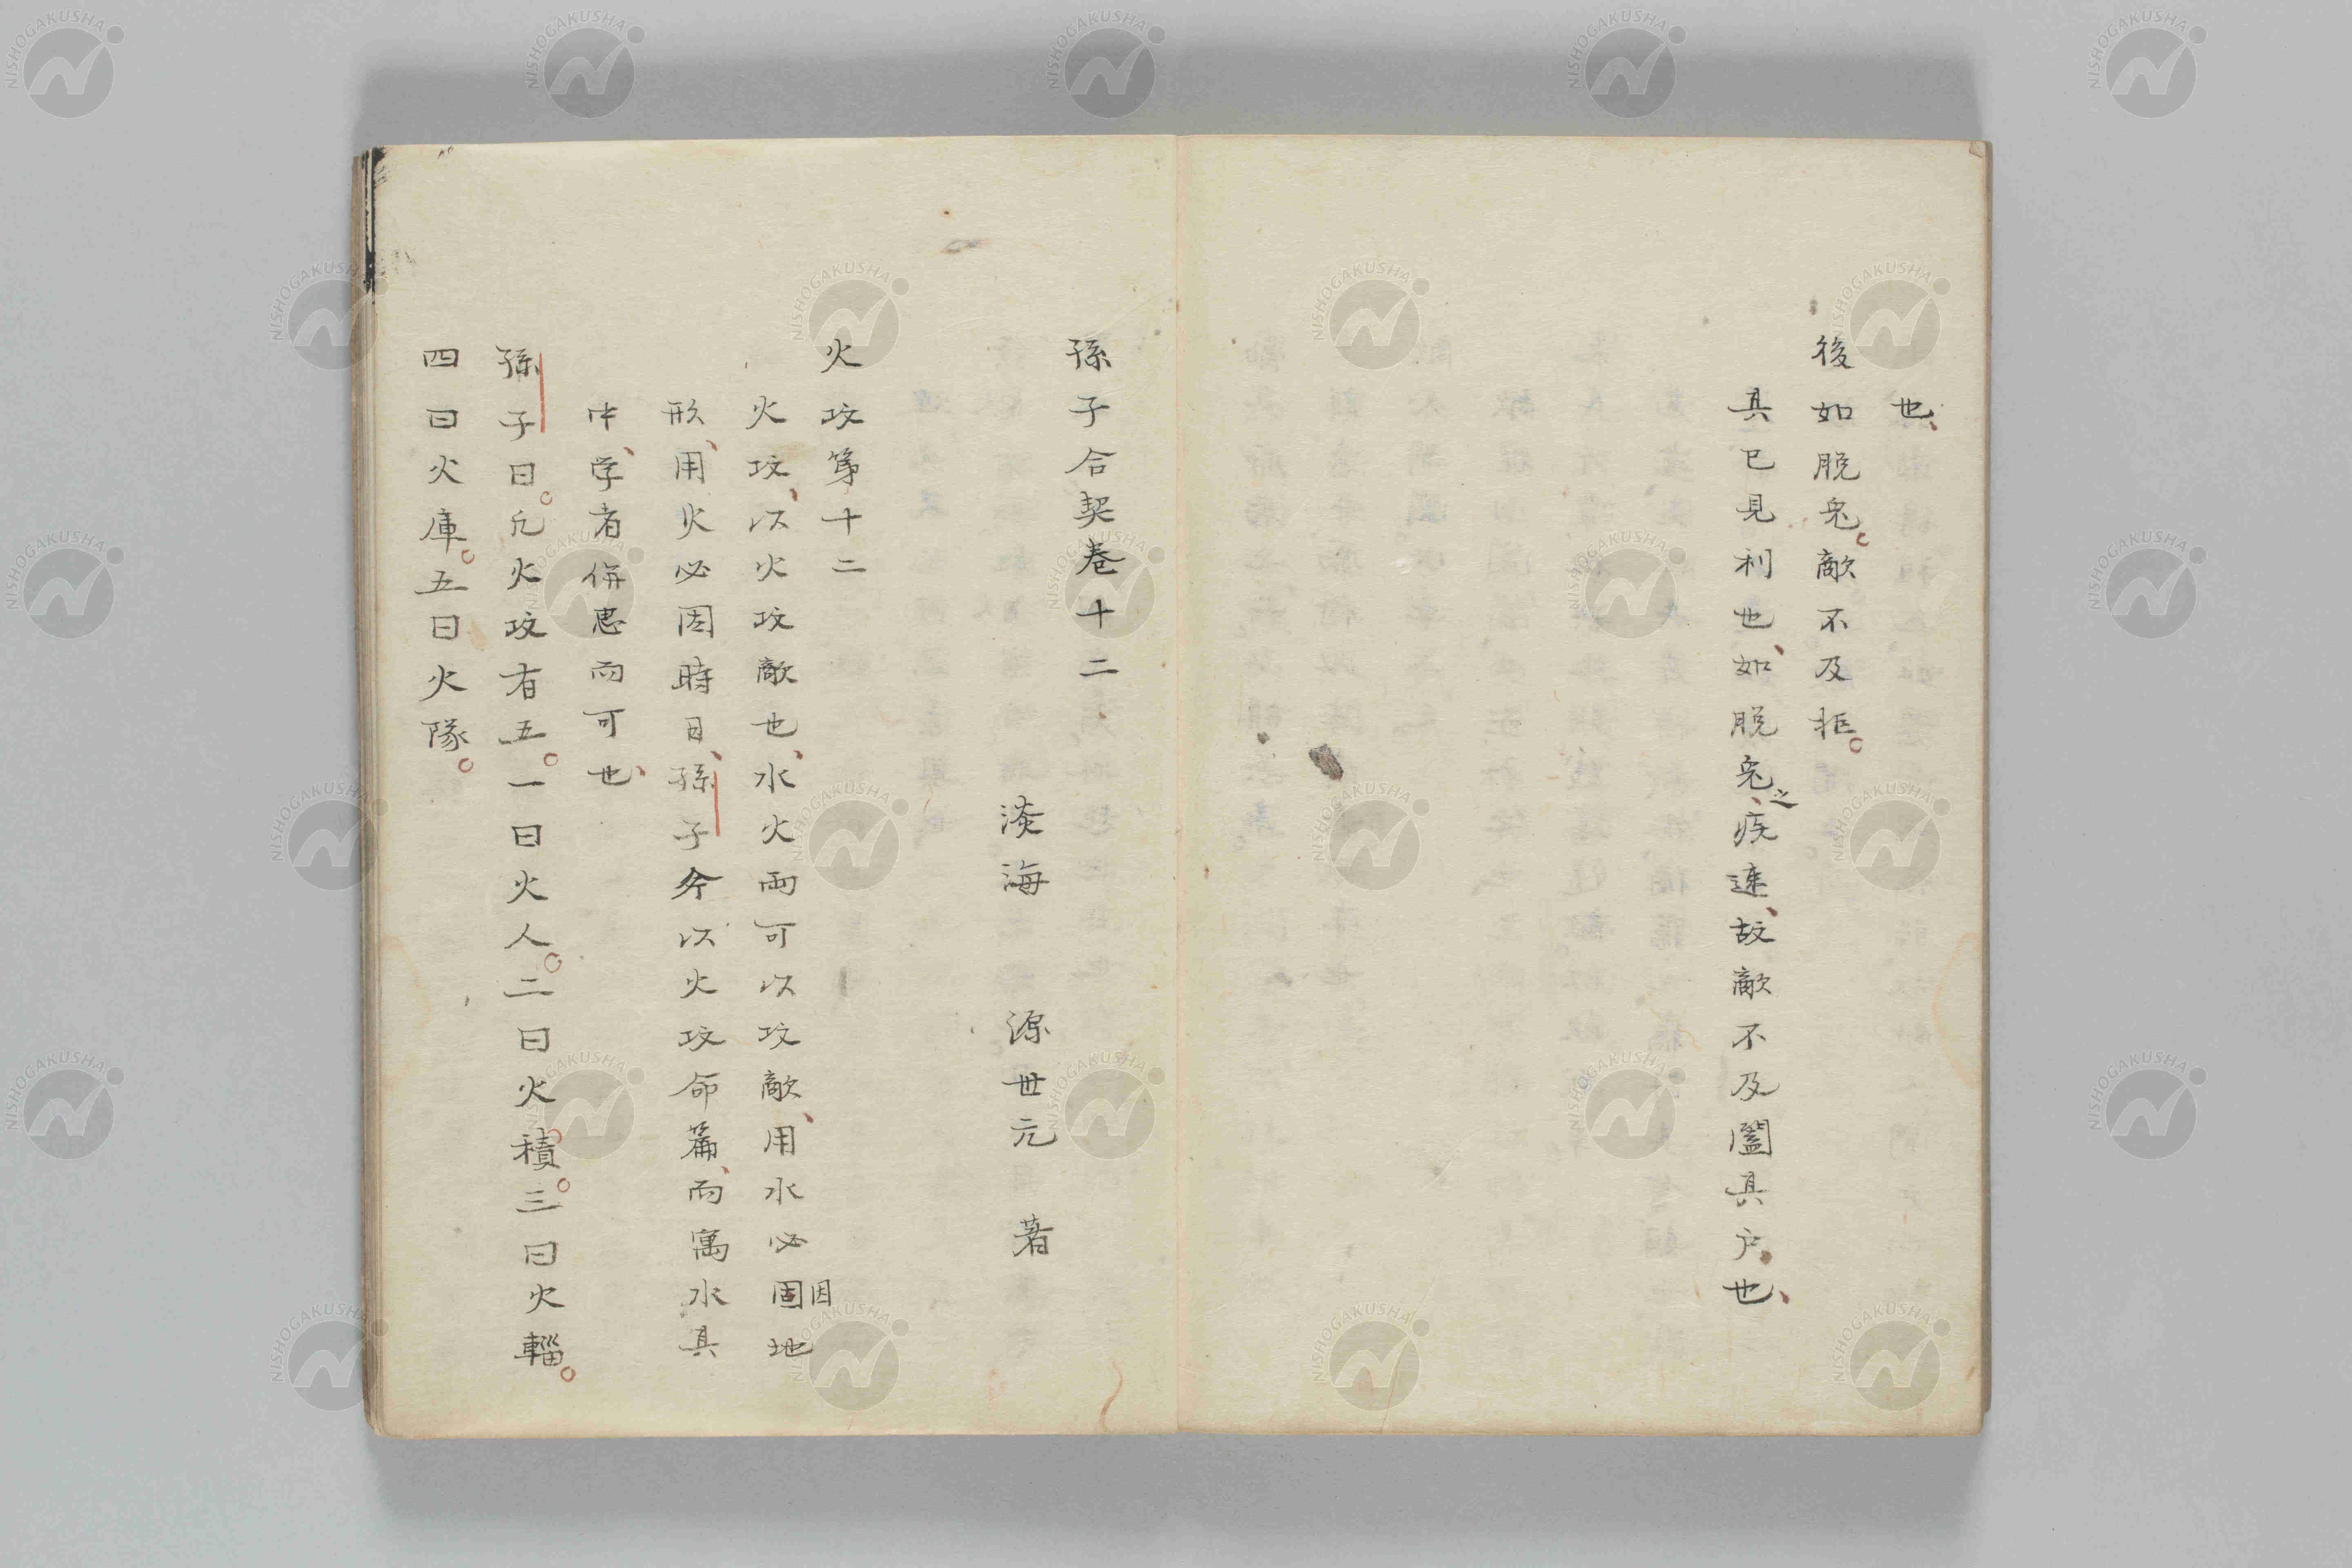 也、
後如脱兎。敵不及拒。
其已見利也、如脱兎、之疾速、故敵不及闔其户也、
孫子合契卷十二
淡海 源世元 著
火攻第十二
火攻、以火攻敵也、水火両可以攻敵、用水必固因地
形、用火必因時日、孫子今以火攻命篇、而寓水其
中、学者併思而可也、
孫子曰。凢火攻有五。一曰火人。二曰火積。三曰火輜。
四曰火庫。五曰火隊。